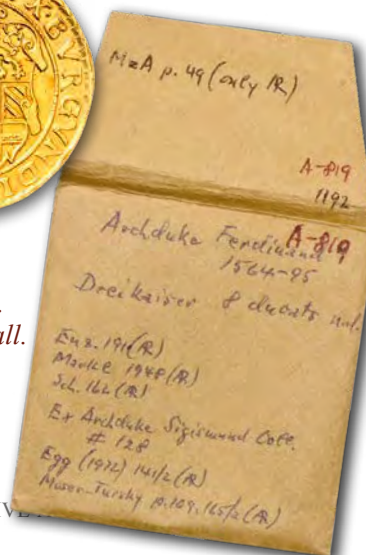 X·BVRGVNDI
MzA p. 49 (only AR)
A-819
1192
Archduke Ferdinand A-819
1564-95
Dreikaiser 8 ducats nd.
all.
Enz. 191 (AR)
Markl 1948 (AR)
Sch. 162 (AR)
Ex Archduke Sigismund Coll.
# 128
Egg (1972) 141/2 (AR)
Moser-Tursky p. 109. 165/2 (AR)